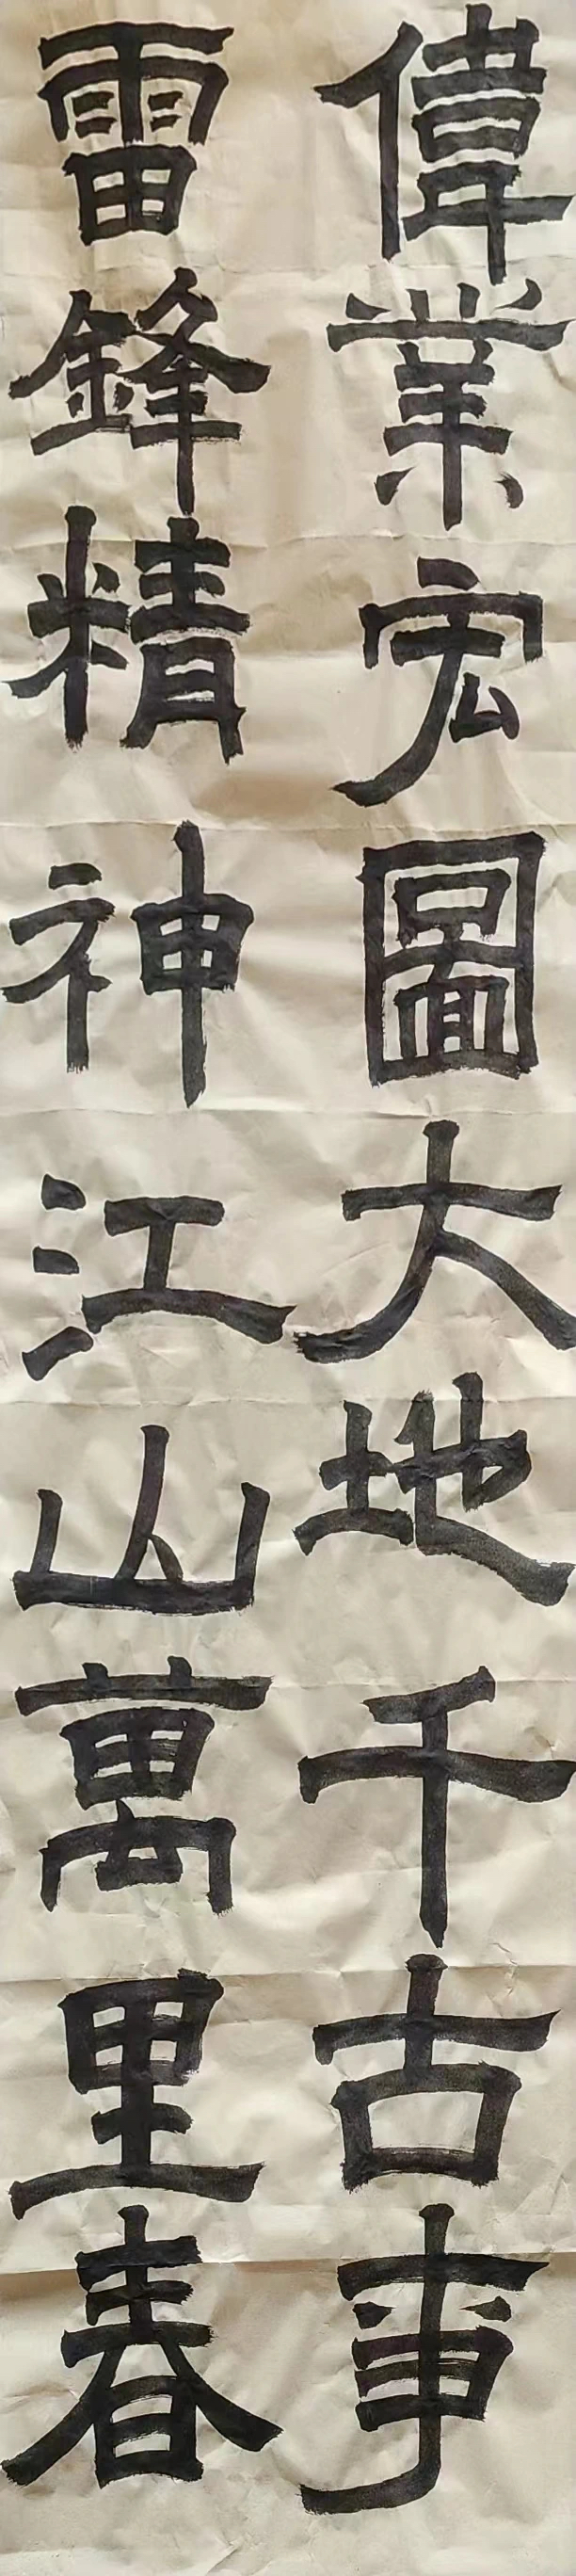 偉業宏圖大地千古事
雷鋒精神江山萬里春